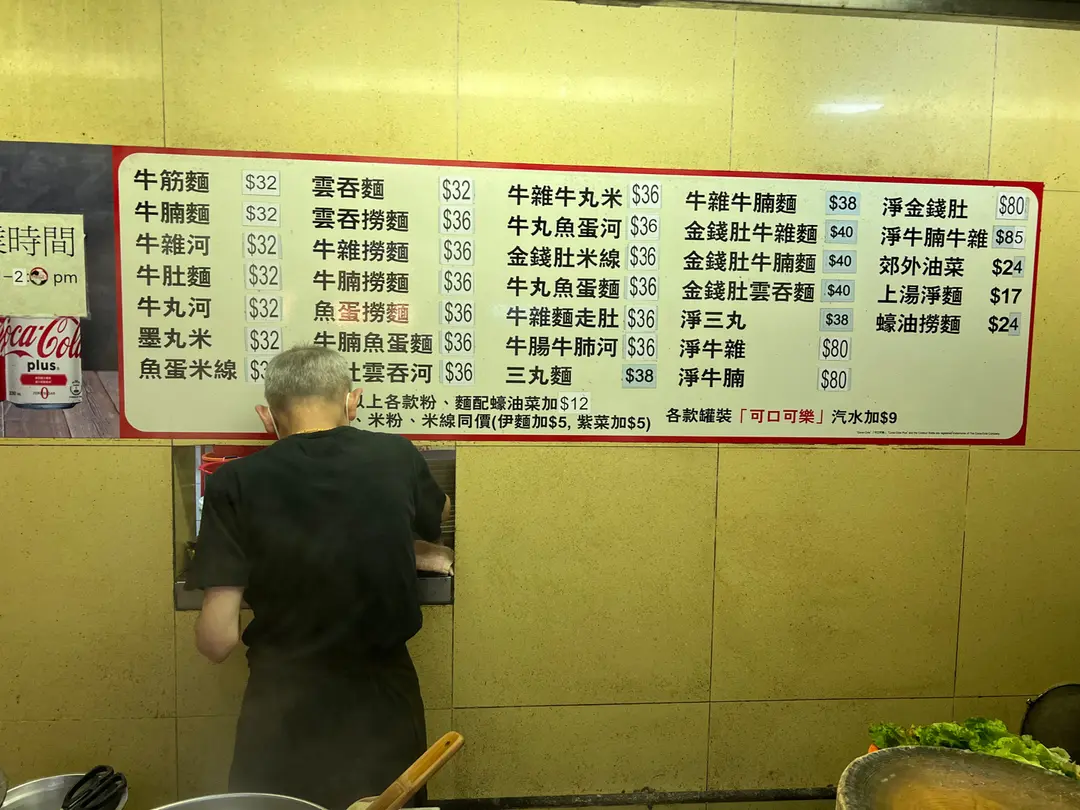 業時間
-2: pm
Coca-Cola
plus
牛筋麵 $32
牛腩麵 $32
牛雜河 $32
牛肚麵 $32
牛丸河 $32
墨丸米 $32
魚蛋米線
雲吞麵 $32
雲吞撈麵 $36
牛雜撈麵 $36
牛腩撈麵 $36
魚蛋撈麵 $36
牛腩魚蛋麵 $36
雲吞河 $36
牛雜牛丸米 $36
牛丸魚蛋河 $36
金錢肚米線 $36
牛丸魚蛋麵 $36
牛雜麵走肚 $36
牛腸牛肺河 $36
三丸麵 $38
牛雜牛腩麵 $38
金錢肚牛雜麵 $40
金錢肚牛腩麵 $40
金錢肚雲吞麵 $40
淨三丸 $38
淨牛雜 $80
淨牛腩 $80
淨金錢肚 $80
淨牛腩牛雜 $85
郊外油菜 $24
上湯淨麵 $17
蠔油撈麵 $24
上各款粉、麵配蠔油菜加$12
、米粉、米線同價(伊麵加$5, 紫菜加$5)
各款罐裝「可口可樂」汽水加$9